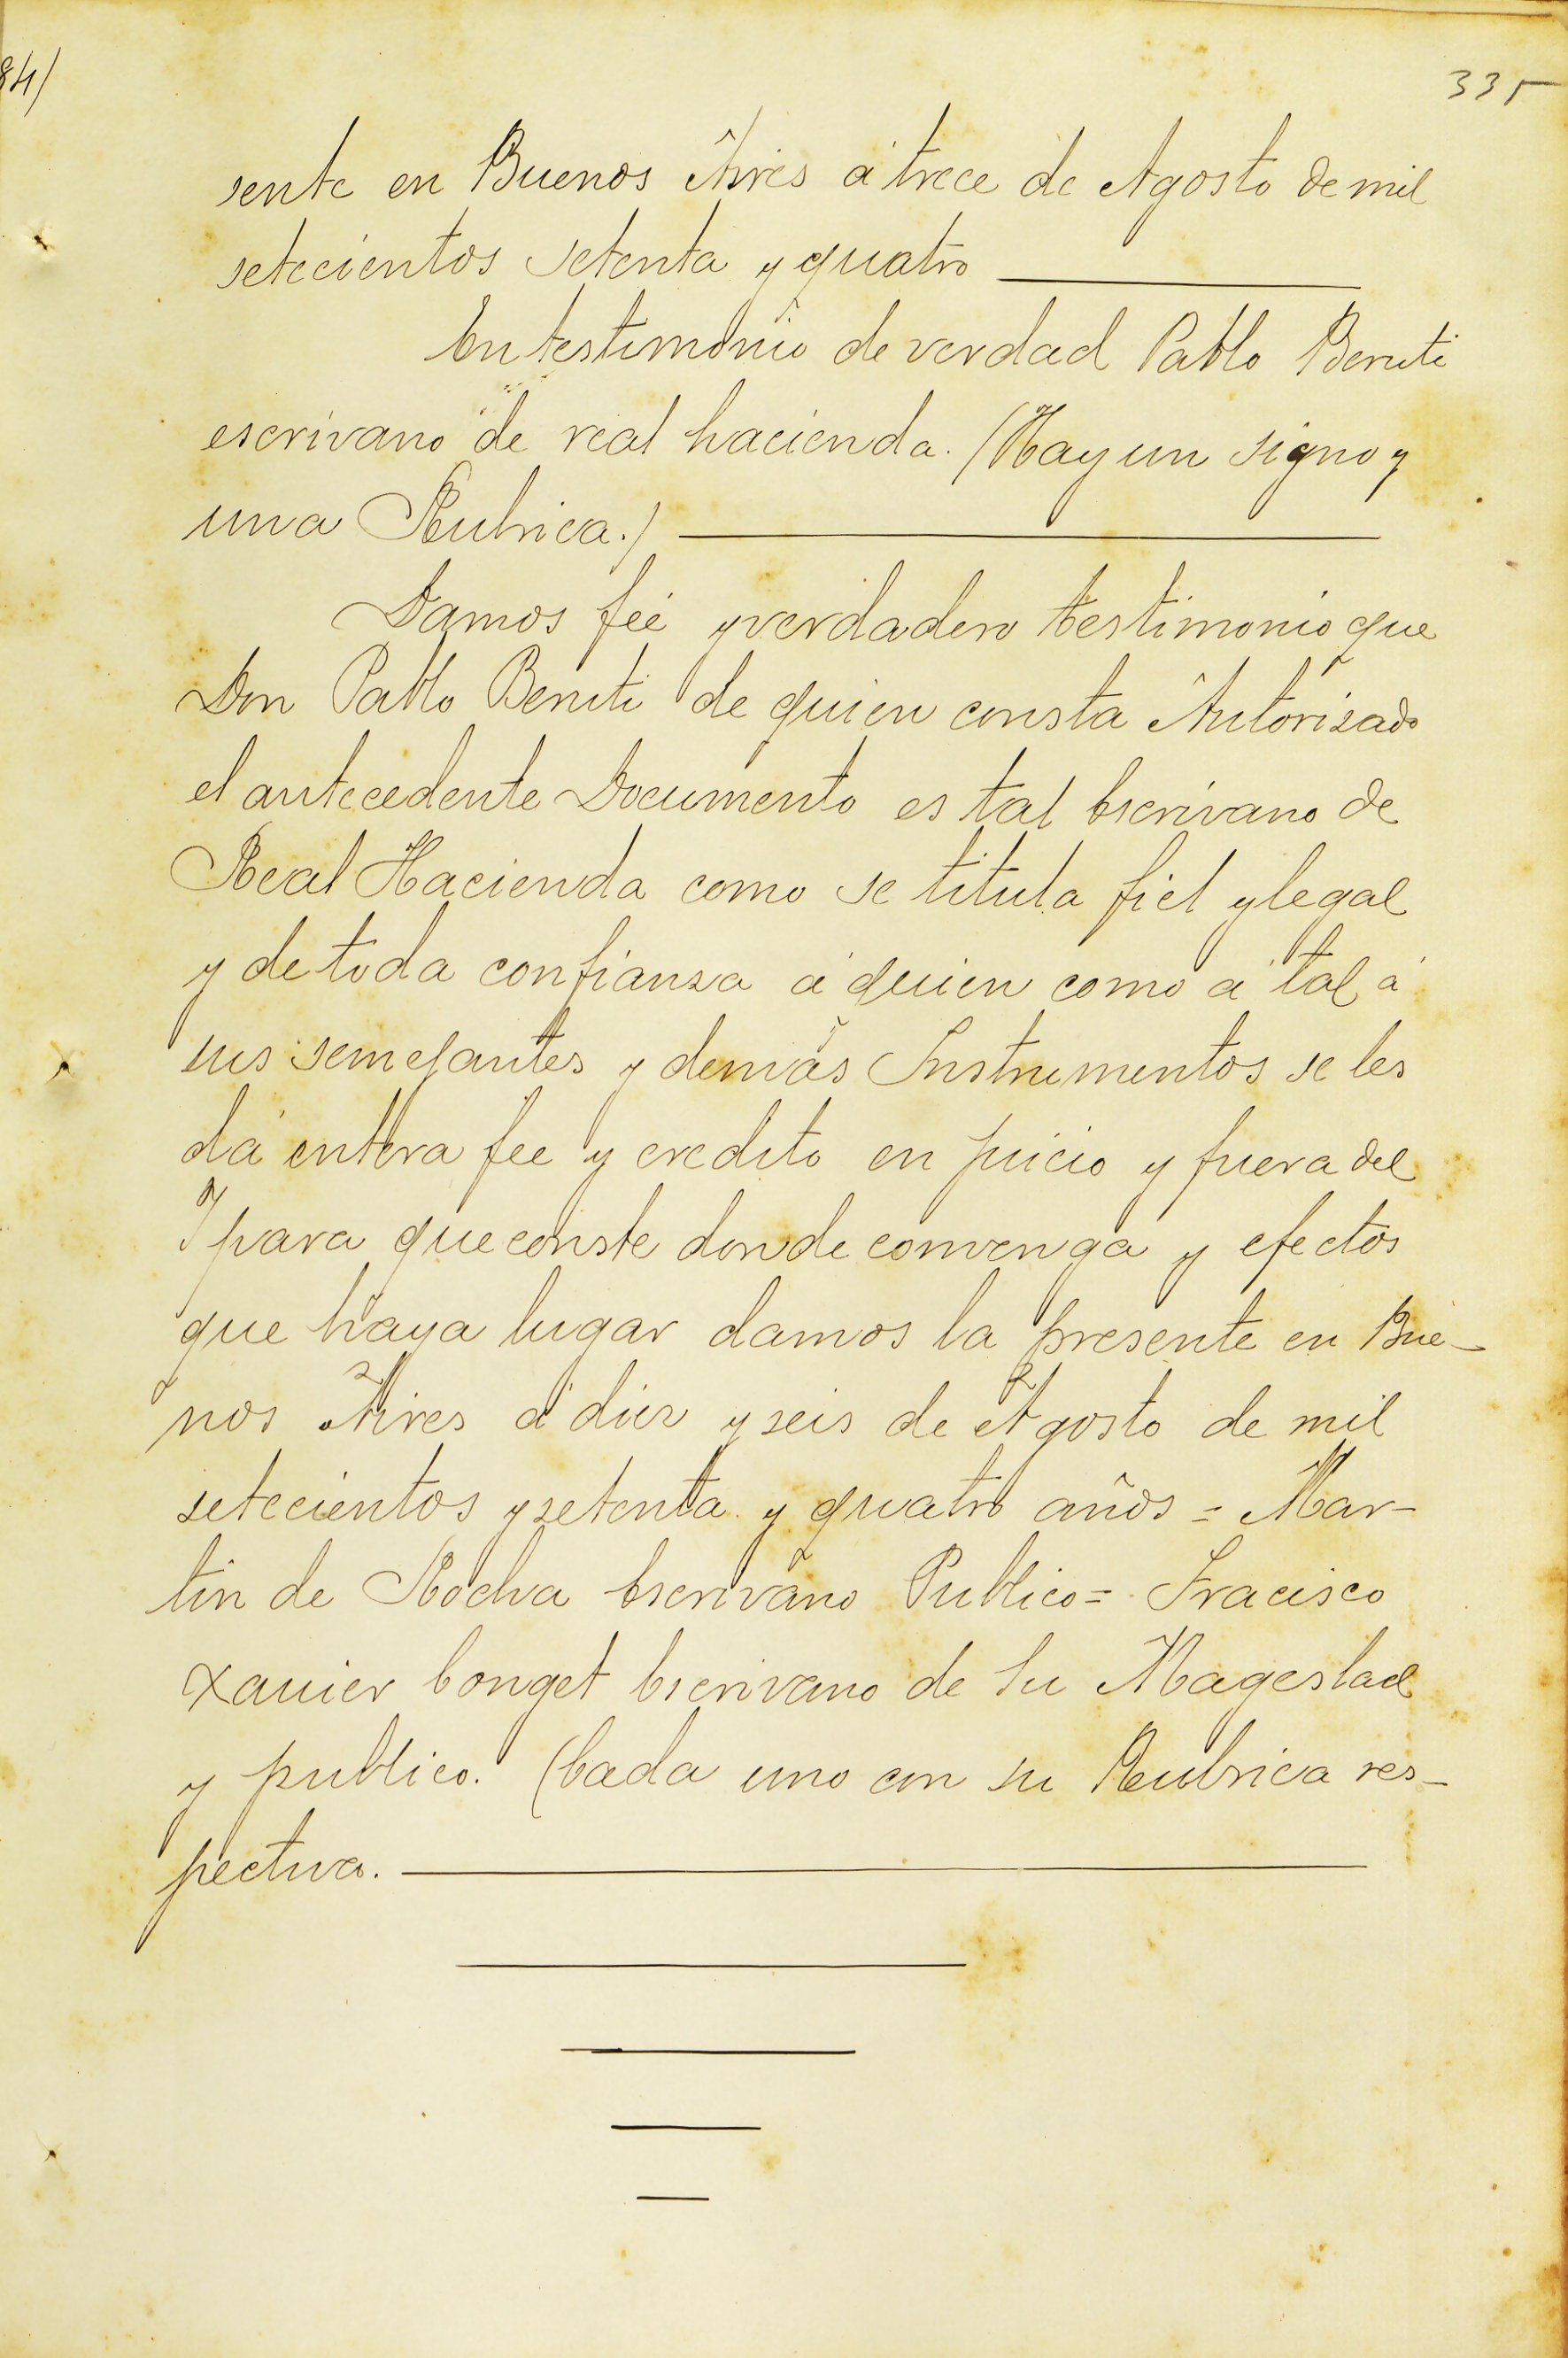 84)
335
sente en Buenos Aires á trece de Agosto de mil
setecientos setenta y quatro
En testimonio de verdad Pablo Beruti
escrivano de real hacienda. (Hay un signo y
una Rubrica.)
Damos feé y verdadero testimonio que
Don Pablo Beruti de quien consta Autorisado
el antecedente Documento es tal Escrivano de
Real Hacienda como se titula fiel y legal
y de toda confiansa á quien como á tal á
sus semejantes y demás Instrumentos se les
dá entera fee y credito en juicio y fuera del
Y para que conste donde convenga y efectos
que haya lugar damos la presente en Bue-
nos Aires á diez y seis de Agosto de mil
setecientos y setenta y quatro años = Mar-
tin de Rocha Escrivano Publico = Fracisco
Xauier Conget Escrivano de Su Magestad
y publico. (Cada uno con su Rubrica res-
pectiva.